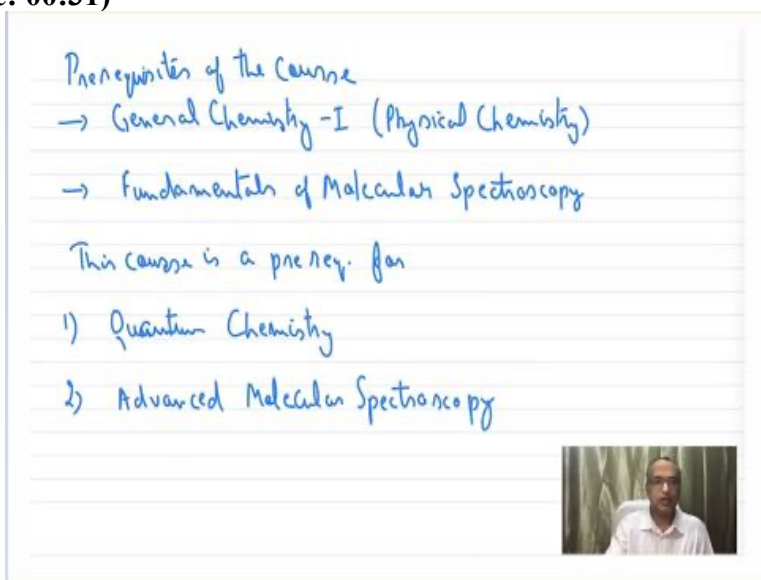 00:31)
Prerequisites of the Course
→ General Chemistry -I (Physical Chemistry)
→ Fundamentals of Molecular Spectroscopy
This course is a prereq. for
1) Quantum Chemistry
2) Advanced Molecular Spectroscopy